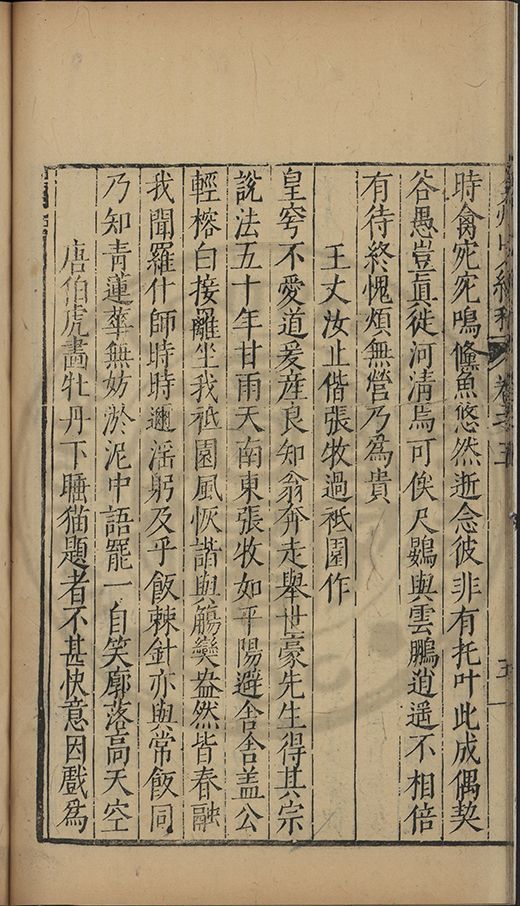 時禽宛宛鳴鯈魚悠然逝念彼非有托叶此成偶契
谷愚豈眞徙河清焉可俟尺鷃與雲鵬逍遥不相倍
有待終愧煩無營乃爲貴
王丈汝止偕張牧過祗園作
皇穹不愛道爰産良知翁奔走舉世豪先生得其宗
說法五十年甘雨天南東張牧如平陽避舍舍盖公
輕榕白接䍦坐我祗園風恢諧與觴爕盎然皆春融
我聞羅什師時時邇淫躬及乎飯棘針亦與常飯同
乃知青蓮華無妨淤泥中語罷一自笑廓落高天空
唐伯虎畵牡丹下睡猫題者不甚快意因戲爲